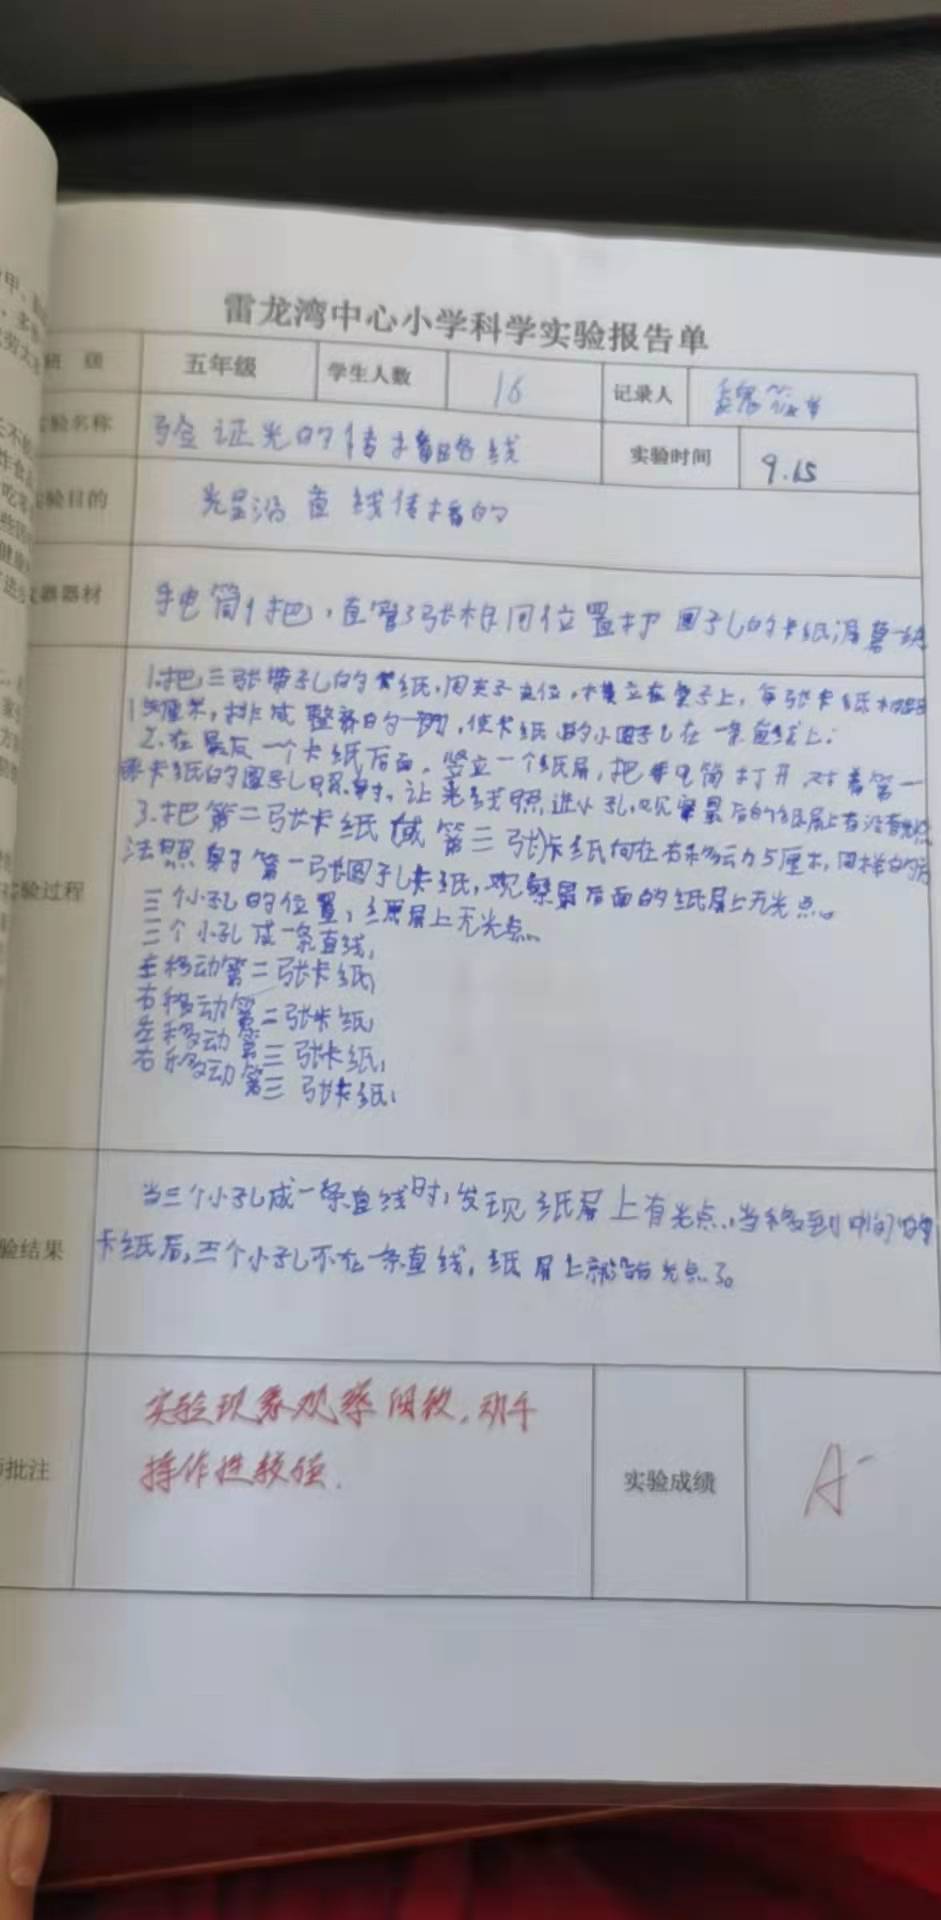 雷龙湾中心小学科学实验报告单
班 级 五年级 学生人数 16 记录人 魏筱
实验名称 验证光的传播路线 实验时间 9.15
实验目的 光是沿直线传播的
器器材 手电筒1把,直管3张相同位置打圆孔的卡纸,屏幕一块
1.把三张带孔的卡纸,用夹子 立在桌子上,每张卡纸相距
15厘米,排成整齐的一列,使卡纸的小圆孔在一条直线上;
2.在最后一个卡纸后面,竖立一个纸屏,把手电筒打开对着第一
张卡纸的圆孔照射,让光线照进小孔,观察最后的纸屏上有没有光点
3.把第二张卡纸或第三张卡纸向左右移动5厘米,同样的方
法照射第一张圆孔卡纸,观察最后面的纸屏上无光点。
实验过程
三个小孔的位置,纸屏上无光点。
三个小孔成一条直线,
左移动第二张卡纸,
右移动第二张卡纸,
左移动第三张卡纸,
右移动第三张卡纸,
当三个小孔成一条直线时,发现纸屏上有光点,当移到中间的
验结果 卡纸后,三个小孔不在一条直线,纸屏上就没有光点了。
实验现象观察细致,动手
操作性较强.
批注 实验成绩 A-